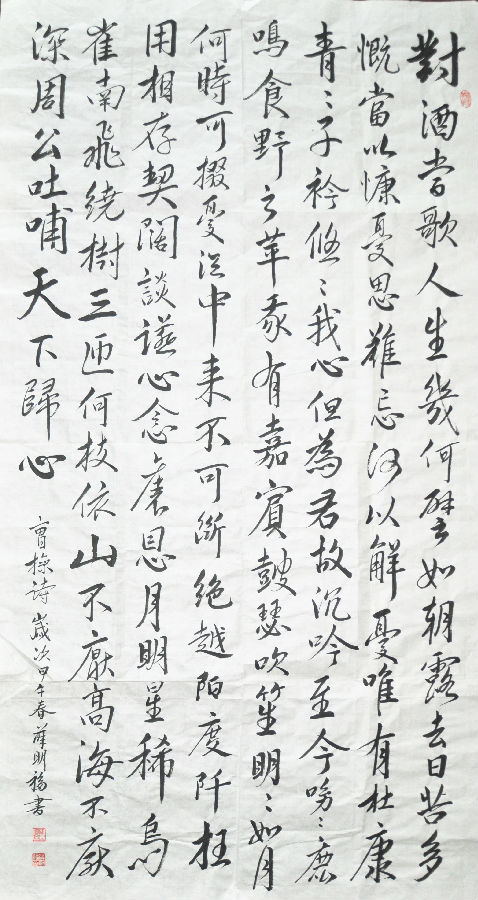 對酒當歌人生幾何譬如朝露去日苦多
慨當以慷憂思難忘何以解憂唯有杜康
青〻子衿悠〻我心但為君故沉吟至今呦〻鹿
鳴食野之苹我有嘉賓鼓瑟吹笙明〻如月
何時可掇憂從中来不可斷絶越陌度阡枉
用相存契闊談讌心念舊恩月明星稀烏
雀南飛繞樹三匝何枝依山不厭高海不厭
深周公吐哺天下歸心
曹操诗歲次甲午春薛明揚書